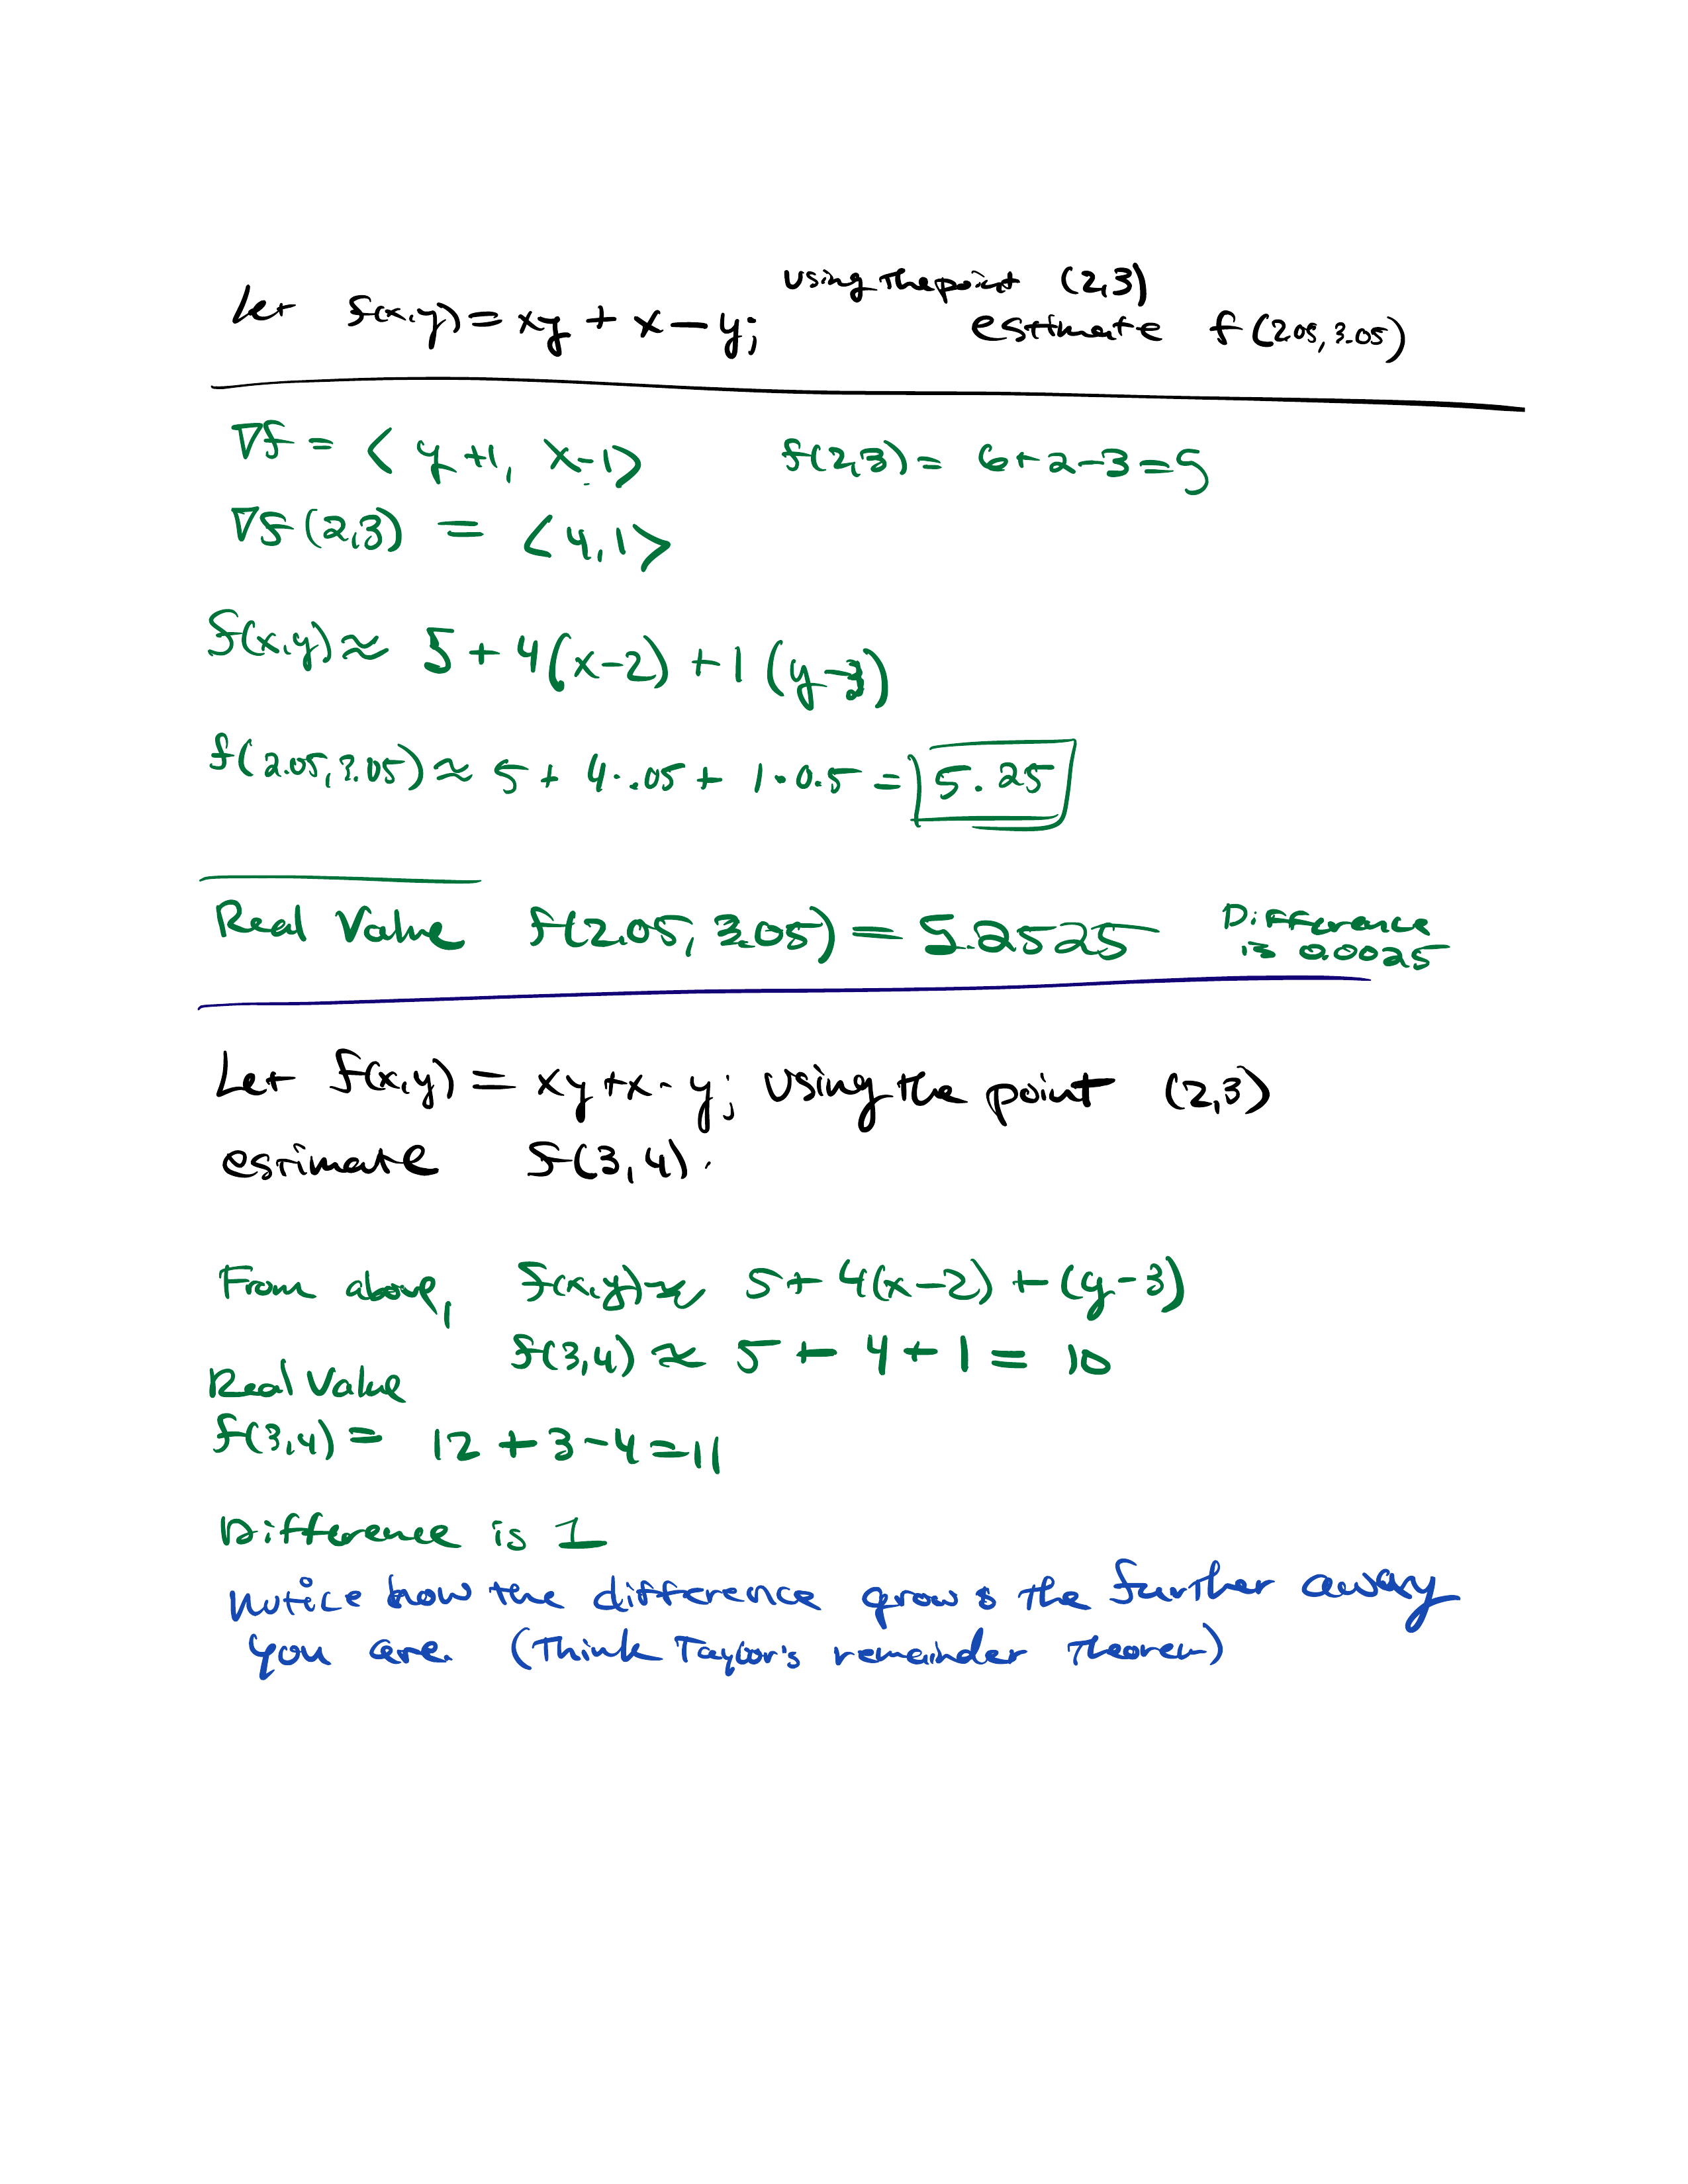 Let f(x,y) = xy + x - y; using the point (2,3)
estimate f(2.05, 3.05)
∇f = < y+1, x-1> f(2,3) = 6+2-3=5
∇f(2,3) = <4,1>
f(x,y) ≈ 5 + 4(x-2) + 1(y-3)
f(2.05, 3.05) ≈ 5 + 4·.05 + 1·0.5 = 5.25
Real Value f(2.05, 3.05) = 5.2525 Difference
is 0.0025
Let f(x,y) = xy+x-y; using the point (2,3)
estimate f(3,4).
From above, f(x,y) ≈ 5+ 4(x-2) + (y-3)
f(3,4) ≈ 5 + 4 + 1 = 10
Real Value
f(3,4) = 12 + 3 - 4 = 11
Difference is 1
Notice how the difference grows the further away
you are. (Think Taylor's remainder Theorem)